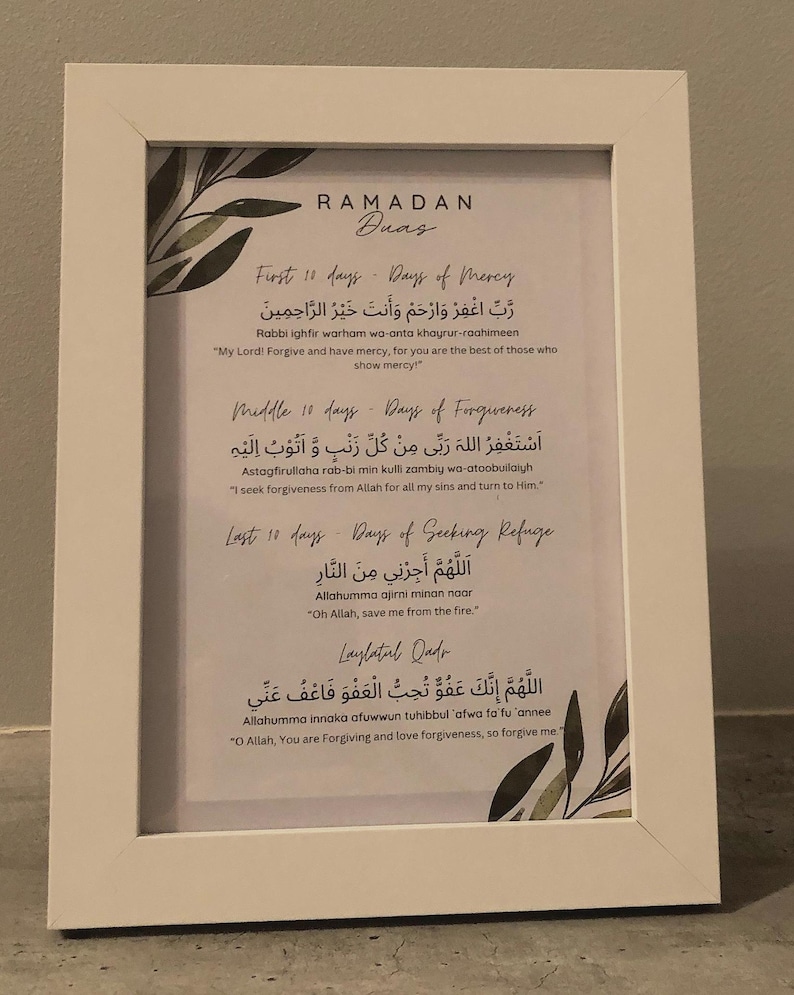 RAMADAN
Duas
First 10 days - Days of Mercy
رَّبِّ اغْفِرْ وَارْحَمْ وَأَنتَ خَيْرُ الرَّاحِمِينَ
Rabbi ighfir warham wa-anta khayrur-raahimeen
“My Lord! Forgive and have mercy, for you are the best of those who
show mercy!”
Middle 10 days - Days of Forgiveness
اَسْتَغْفِرُ اللهَ رَبِّى مِنْ كُلِّ زَنْبٍ وَّ اَتُوْبُ اِلَيْهِ
Astagfirullaha rab-bi min kulli zambiy wa-atoobuilaiyh
“I seek forgiveness from Allah for all my sins and turn to Him.”
Last 10 days - Days of Seeking Refuge
اَللَّهُمَّ أَجِرْنِي مِنَ النَّارِ
Allahumma ajirni minan naar
“Oh Allah, save me from the fire.”
Laylatul Qadr
اللَّهُمَّ إِنَّكَ عَفُوٌّ تُحِبُّ الْعَفْوَ فَاعْفُ عَنِّي
Allahumma innaka afuwwun tuhibbul `afwa fa`fu `annee
“O Allah, You are Forgiving and love forgiveness, so forgive me.”